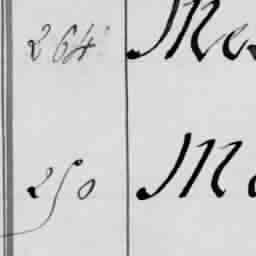 264 Me
250 M